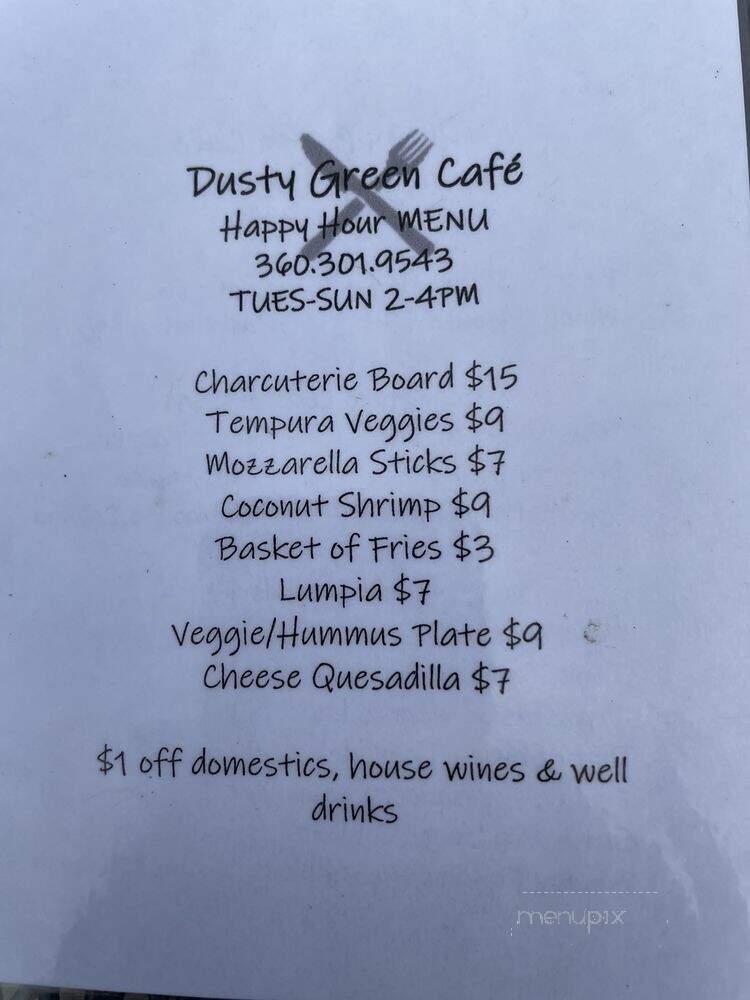 Dusty Green Café
Happy Hour MENU
360.301.9543
TUES-SUN 2-4PM
Charcuterie Board $15
Tempura Veggies $9
Mozzarella Sticks $7
Coconut Shrimp $9
Basket of Fries $3
Lumpia $7
Veggie/Hummus Plate $9
Cheese Quesadilla $7
$1 off domestics, house wines & well
drinks
menupix